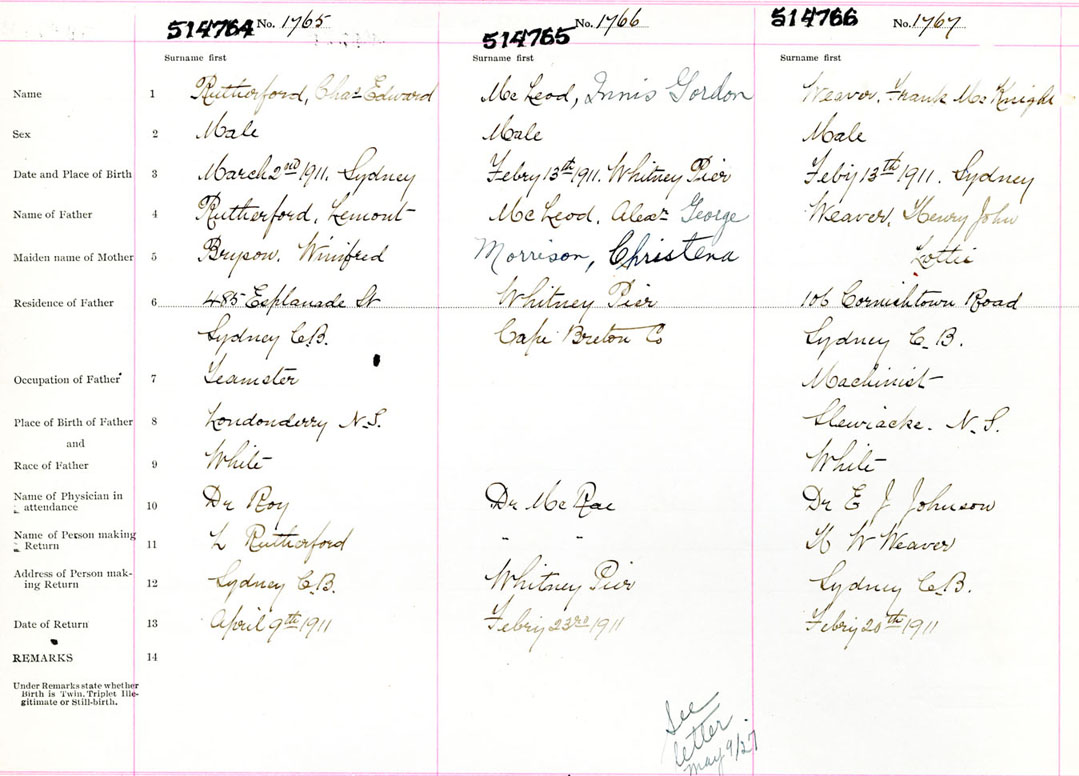 514764 No. 1765
514765 No. 1766
514766 No. 1767
Surname first Surname first Surname first
Name 1 Rutherford, Chas Edward Mc Leod, Innis Gordon Weaver, Frank Mc Knight
Sex 2 Male Male Male
Date and Place of Birth 3 March 2nd 1911. Sydney Febry 13th 1911. Whitney Pier Feby 13th 1911. Sydney
Name of Father 4 Rutherford, Lemont Mc Leod, Alexr George Weaver, Henry John
Maiden name of Mother 5 Bryson, Winifred Morrison, Christena Lottie
Residence of Father 6 485 Esplanade St Whitney Pier 106 Cornishtown Road
Sydney C.B. Cape Breton Co Sydney C.B.
Occupation of Father 7 Teamster Machinist
Place of Birth of Father 8 Londonderry N.S. Stewiacke. N.S.
and
Race of Father 9 White White
Name of Physician in
attendance 10 Dr Roy Dr Mc Rae Dr E J Johnson
Name of Person making
Return 11 L Rutherford " " H W Weaver
Address of Person mak-
ing Return 12 Sydney C.B. Whitney Pier Sydney C.B.
Date of Return 13 April 9th 1911 Febry 23rd 1911 Febry 20th 1911
REMARKS 14
Under Remarks state whether
Birth is Twin, Triplet Ille-
gitimate or Still-birth.
See
letter
May 9/27